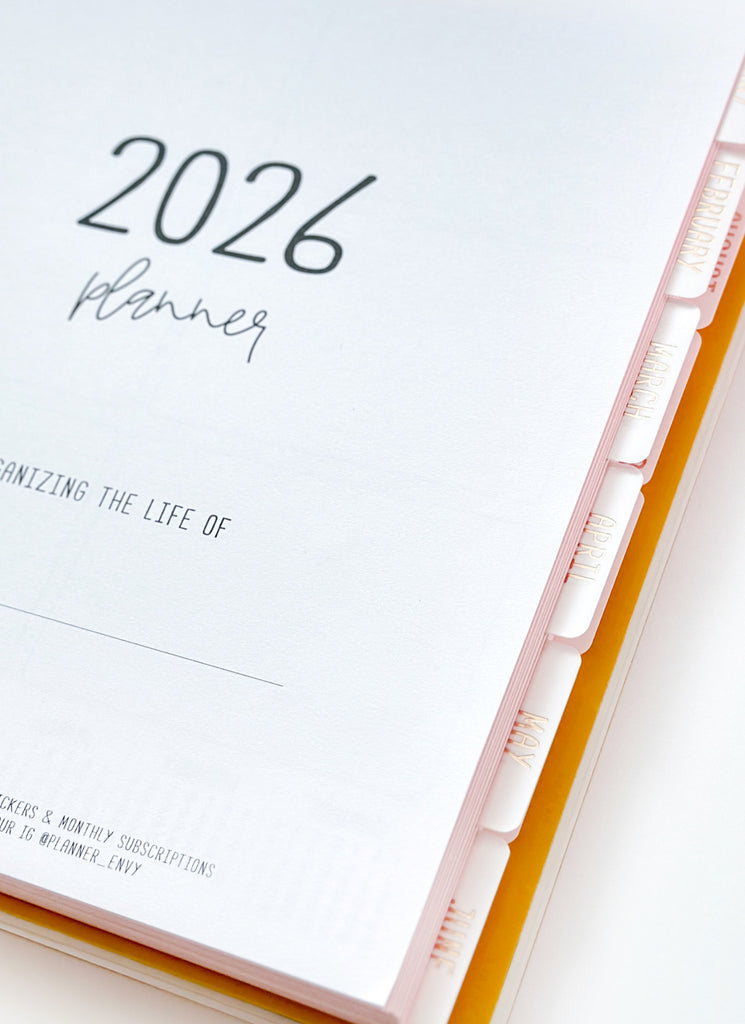 2026
planner
GANIZING THE LIFE OF
ICKERS & MONTHLY SUBSCRIPTIONS
UR IG @PLANNER_ENVY
FEBRUARY
AUGUST
MARCH
APRIL
MAY
JUNE